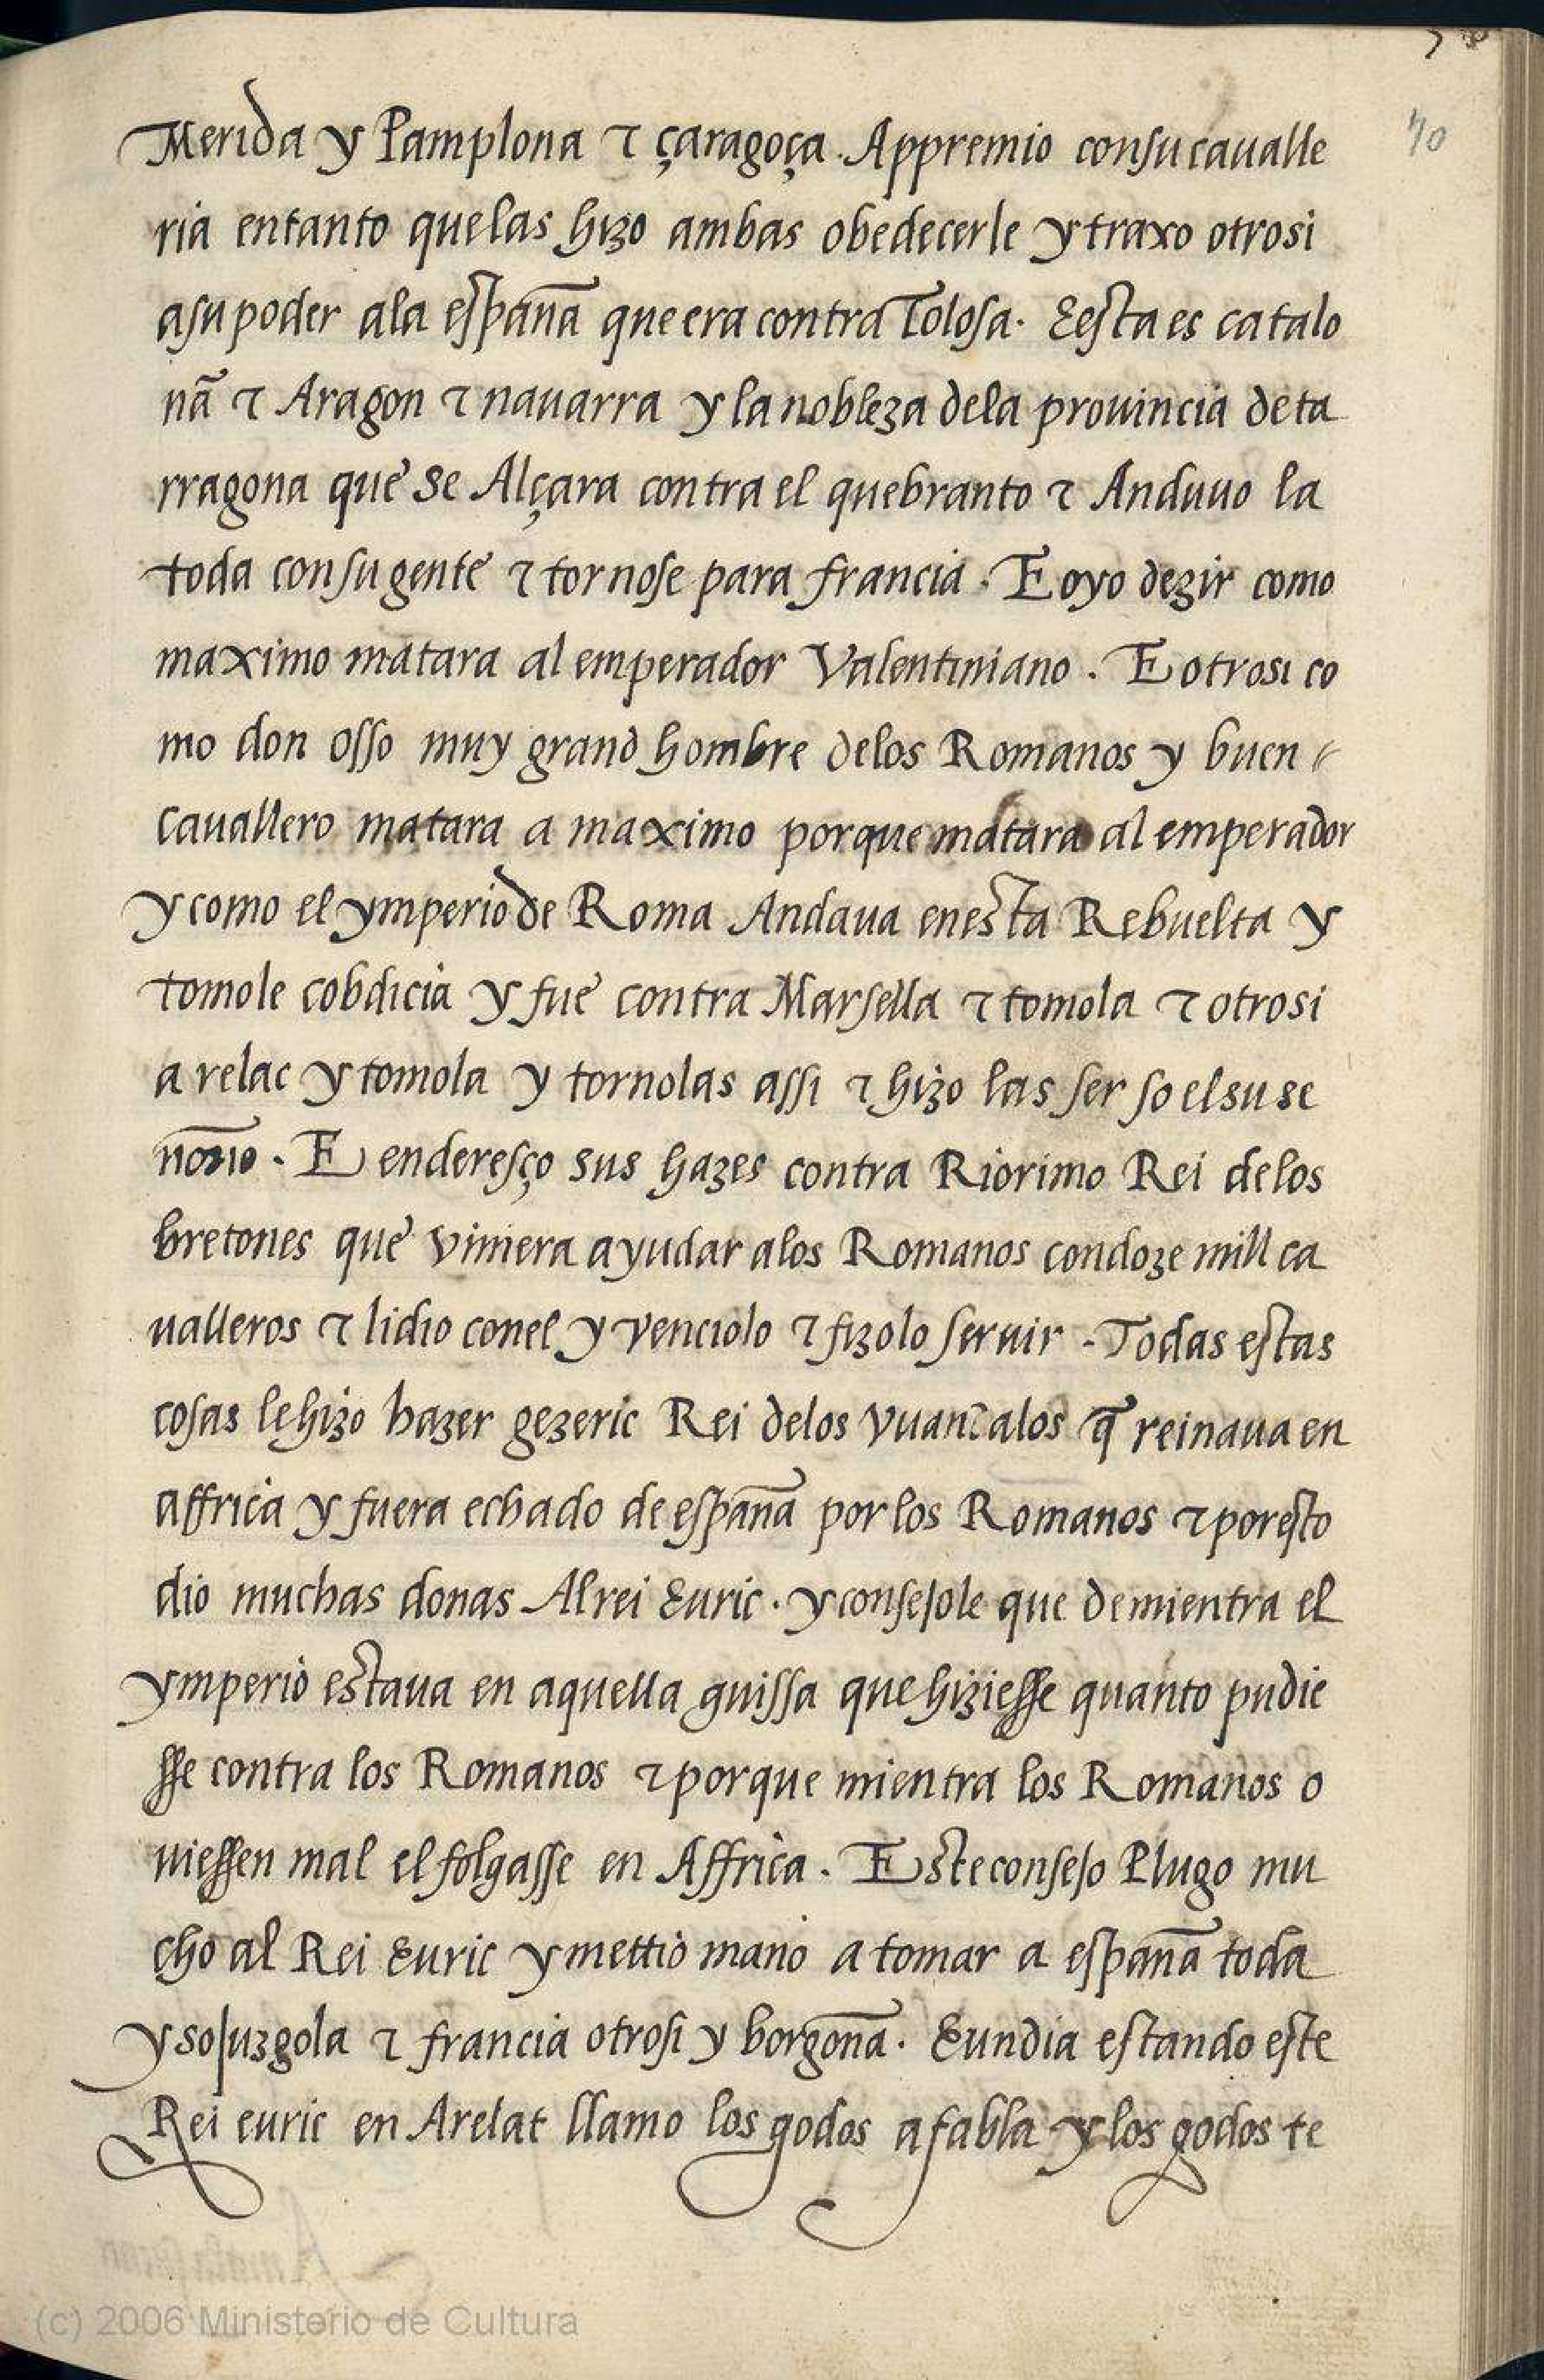 70
Merida y Pamplona τ çaragoça. Appremio consu caualle
ria entanto quelas hizo ambas obedecerle ytraxo otrosi
asupoder ala españa que era contra Tolosa. Eesta es catalo
nã τ Aragon τ nauarra y la nobleza dela prouincia de ta
rragona que se Alçara contra el quebranto τ Anduuo la
toda consugente τ tornose para francia. E oyo dezir como
maximo matara al emperador Valentiniano. E otrosi co
mo don osso muy grand hombre delos Romanos y buen
cauallero matara a maximo porque matara al emperador
y como el ymperio de Roma Andaua enesta Rebuelta y
tomole cobdicia y fue contra Marsella τ tomola τ otrosi
a relac y tomola y tornolas assi τ hizo las ser so elsu se
ñorio. E enderesço sus hazes contra Riorimo Rei delos
bretones que viniera ayudar alos Romanos condoze mill ca
ualleros τ lidio conel y venciolo τ fizolo seruir. Todas estas
cosas lehizo hazer gezeric Rei delos vuandalos q̃ reinaua en
affrica y fuera echado de españa por los Romanos τ poresto
dio muchas donas Al rei Euric. y consejole que demientra el
ymperio estaua en aquella guissa que hiziesse quanto pudie
sse contra los Romanos τ porque mientra los Romanos o
uiessen mal el folgasse en Affrica. Este consejo Plugo mu
cho al Rei Euric y mettio mano a tomar a españa toda
y sojuzgola τ francia otrosi y borgoña. Eundia estando este
Rei euric en Arelat llamo los godos a fabla y los godos te
(c) 2006 Ministerio de Cultura